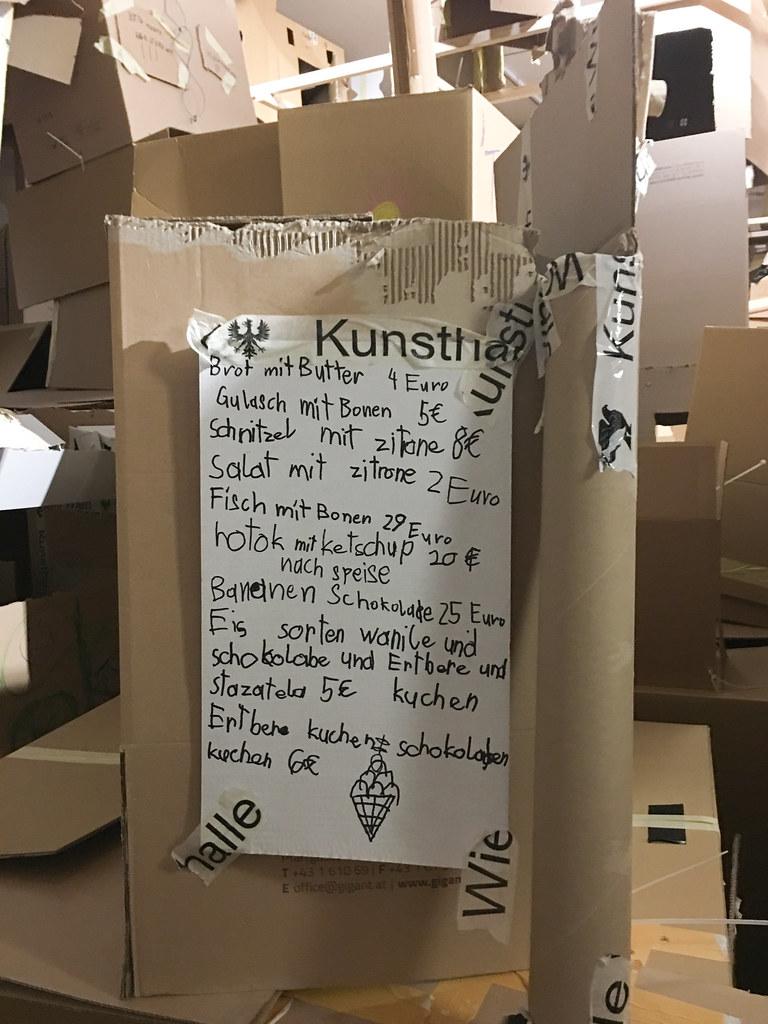 Kunsthal
Kunst
Kuns
Brot mit Butter 4 Euro
Gulasch mit Bonen 5€
Schnitzel mit zitrone 8€
Salat mit zitrone 2 Euro
Fisch mit Bonen 29 Euro
hotok mit ketschup 20 €
nach speise
Bananen Schokolade 25 Euro
Eis sorten wanile und
schokolabe und Ertbere und
stazatela 5€ kuchen
Ertbere kuchen schokoladen
kuchen 6€
halle
Wie
T +43 1 610 69 | F +43 1
E office@gigant.at | www.gigan
le